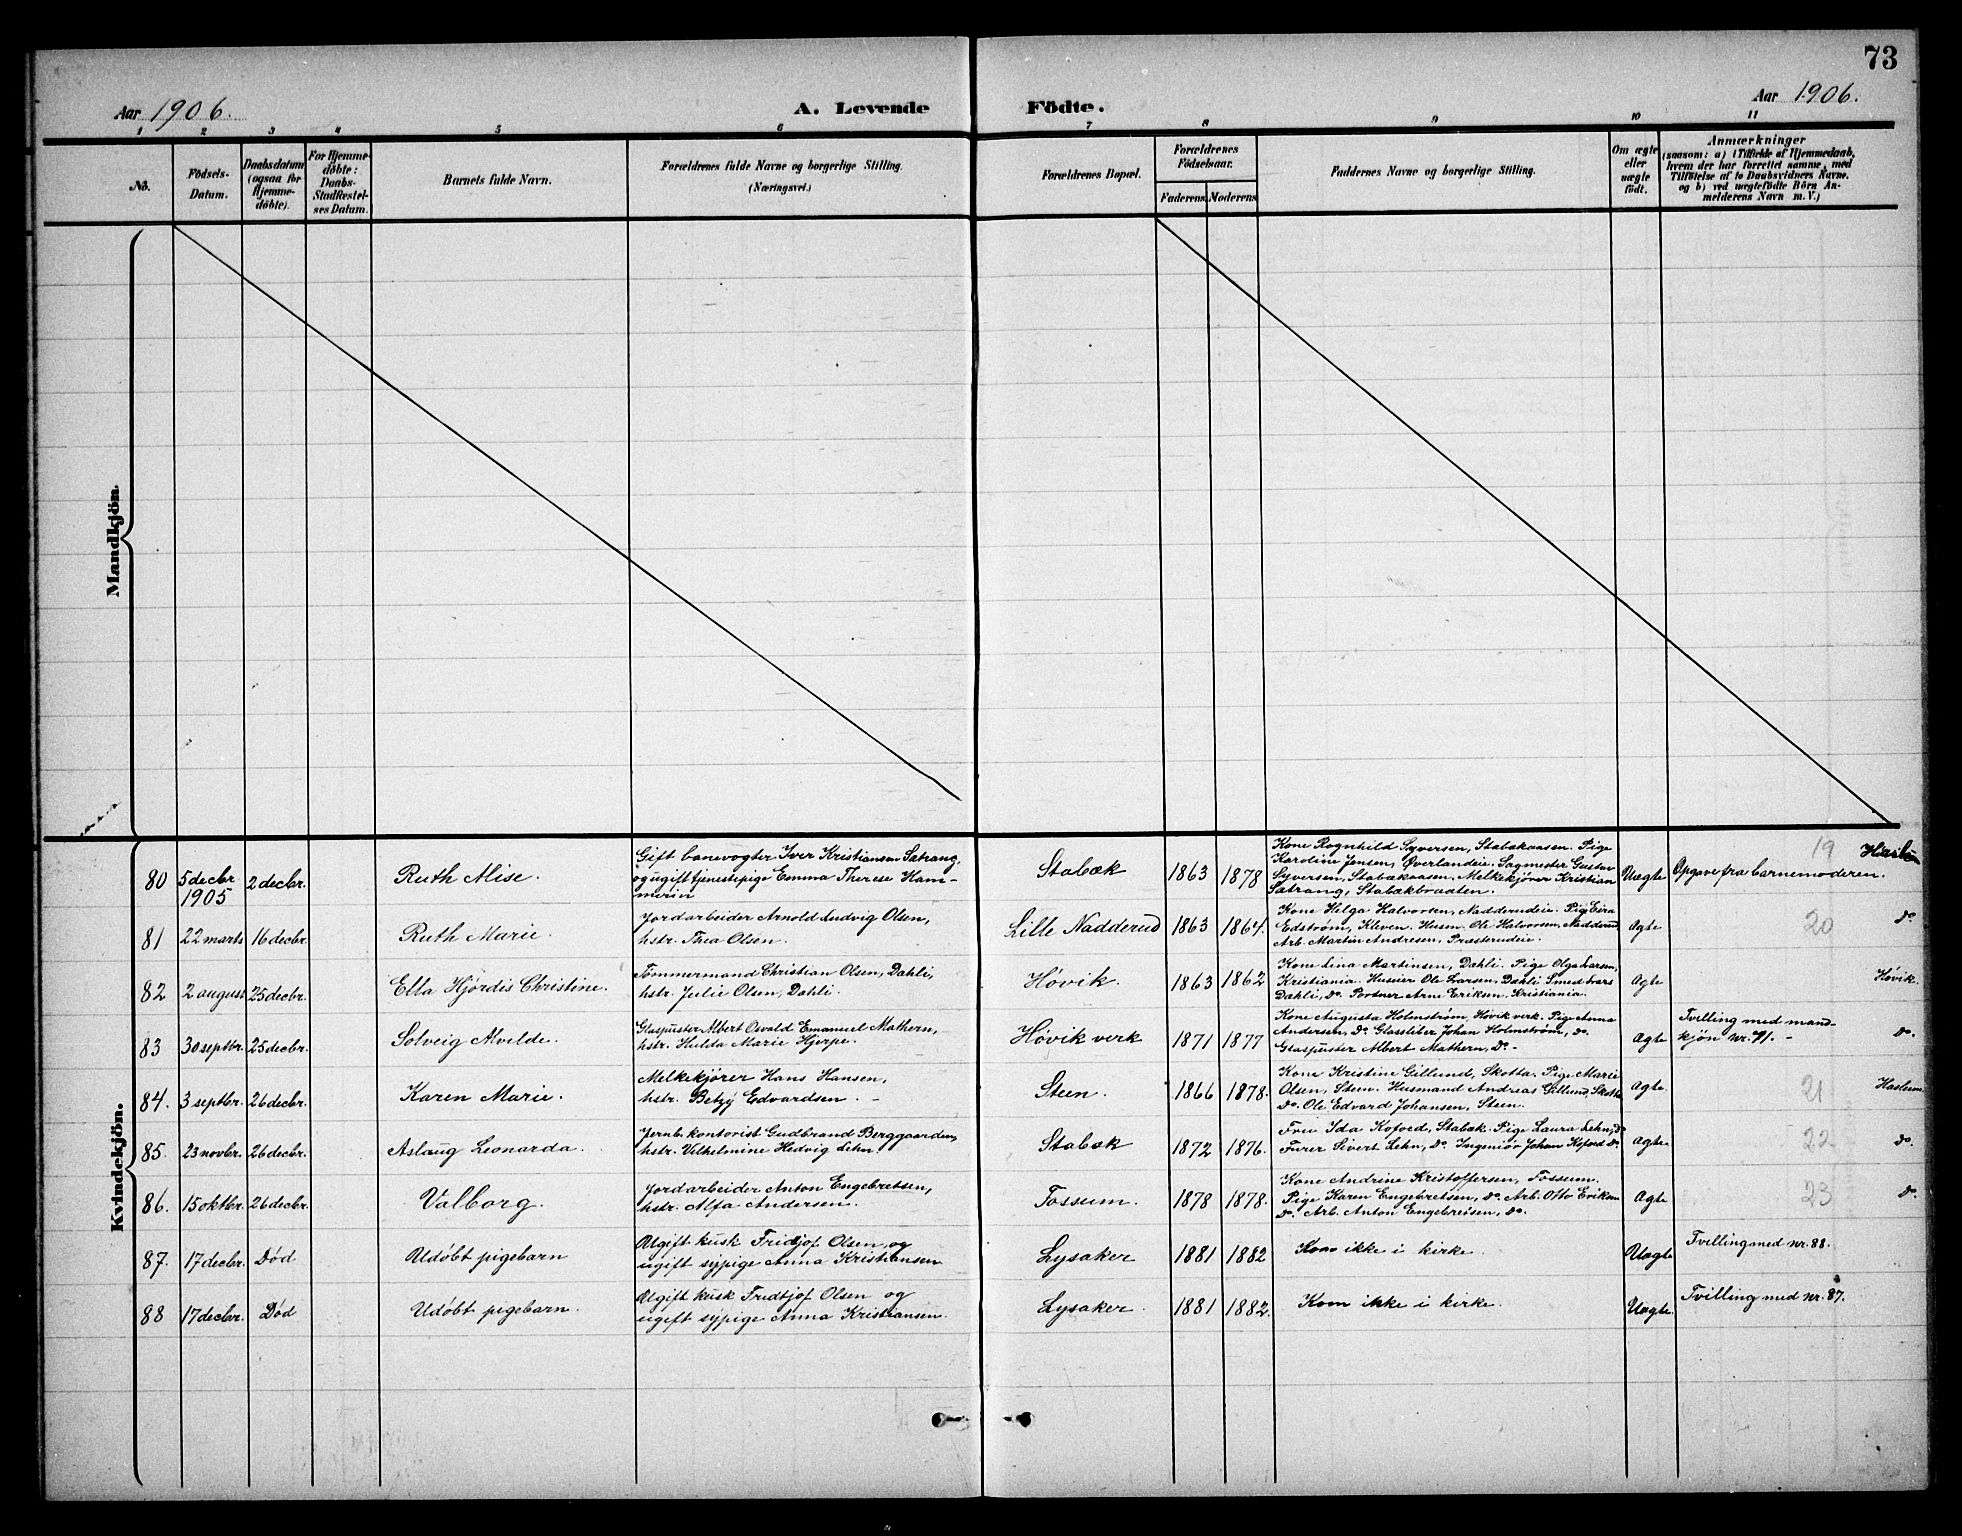 73
Aar 1906.
A. Levende Födte.
Aar 1906.
1 2 3 4 5 6 7 8 9 10 11
No.
Födsels-Datum.
Daabsdatum (ogsaa for Hjemme-döbte).
For Hjemme-döbte: Daabs-Stadfæstel-ses Datum.
Barnets fulde Navn.
Forældrenes fulde Navne og borgerlige Stilling.
(Næringsvei.)
Forældrenes Bopæl.
Forældrenes Födselsaar.
Faderens Moderens
Faddernes Navne og borgerlige Stilling.
Om ægte eller uægte födt.
Anmærkninger
(saasom: a) i Tilfælde af Hjemmedaab,
hvem der har forrettet samme, med
Tilföielse af to Daabsvidners Navne.
og b) ved uægtefödte Börn An-
melderens Navn m. V.)
Mandkjön.
Kvindekjön.
80 5 decbr 1905 2 decbr. Ruth Alise.
Gift banevogter Iver Kristiansen Sætrang,
og ugift tjenestepige Emma Therese Ham-
merin
Stabæk 1863 1878
Kone Rognhild Syversen, Stabækaasen. Pige
Karoline Jensen, Øverlandeie. Sagmester Gustav
Syversen, Stabækaasen. Melkekjører Kristian
Sætrang, Stabækbraaten.
Uægte Opgave fra barnemoderen. 19 Haslum
81 22 marts 16 decbr. Ruth Marie.
Jordarbeider Arnold Ludvig Olsen,
hstr. Thea Olsen.
Lille Nadderud 1863 1864.
Kone Helga Halvorsen, Nadderudeie. Pige
Edstrøm, Kleven. Husm. Ole Halvorsen, Nadderud
Arb. Martin Andresen, Presterudeie.
Ægte 20 Do
82 2 august 25 decbr. Ella Hjördis Christine.
Tømmermand Christian Olsen, Dæhli,
hstr. Julie Olsen, Dæhli.
Høvik. 1863 1862
Kone Lina Martinsen, Dæhli. Pige Olga Larsen,
Kristiania. Huseier Ole Larsen, Dæhli Smed
Dæhli, Do. Portner Arne Eriksen. Kristiania.
Ægte Høvik.
83 30 septbr. 25 decbr. Solveig Alvilde.
Glaspuster Albert Osvald Emanuel Mathern,
hstr. Hulda Marie Hjerpe.
Høvik verk 1871 1877
Kone Augusta Holmstrøm, Høvik verk. Pige Anna
Andersen, Do. Glassliber Johan Holmstrøm, Do.
Glaspuster Albert Mathern, Do -
Ægte Tvilling med mand-
kjön nr. 71. - Do.
84. 3 septbr. 26 decbr. Karen Marie.
Melkekjører Hans Hansen,
hstr. Betzy Edvardsen. -
Steen. 1866 1878.
Kone Kristine Gillund, Skotta. Pige Marie
Olsen, Steen. Husmand Andreas Gillund, Skotta
Do. Ole Edvard Johansen, Steen.
Ægte 21 Haslum
85. 23 novbr. 26 decbr. Aslaug Leonarda.
Jernb. kontorist Gudbrand Berggaarden,
hstr. Vilhelmine Hedvig Lehn.
Stabæk 1872 1876.
Frue Ida Kofoed, Stabæk. Pige Laura Lehn, Do
Furer Sivert Lehn, Do. Ingeniør Johan Kofoed Do
Ægte 22 Do.
86. 15 oktbr. 26 decbr. Valborg.
Jordarbeider Anton Engebretsen,
hstr. Alfa Andersen.
Fossum. 1878 1878.
Kone Andrine Kristoffersen, Fossum.
Pige Karen Engebretsen, Do. Arb. Otto Eriksen
Do. Arb. Anton Engebretsen, Do.
Ægte 23 Do.
87. 17 decbr. Død Udøbt pigebarn
Ugift kusk Fridtjof Olsen, og
ugift sypige Anna Kristiansen
Lysaker 1881 1882 Kom ikke i kirke. Uægte Tvilling med nr. 88.
88 17 decbr. Død Udøbt pigebarn.
Ugift kusk Fridtjof Olsen og
ugift sypige Anna Kristiansen.
Lysaker. 1881 1882. Kom ikke i kirke. Uægte. Tvilling med nr. 87.